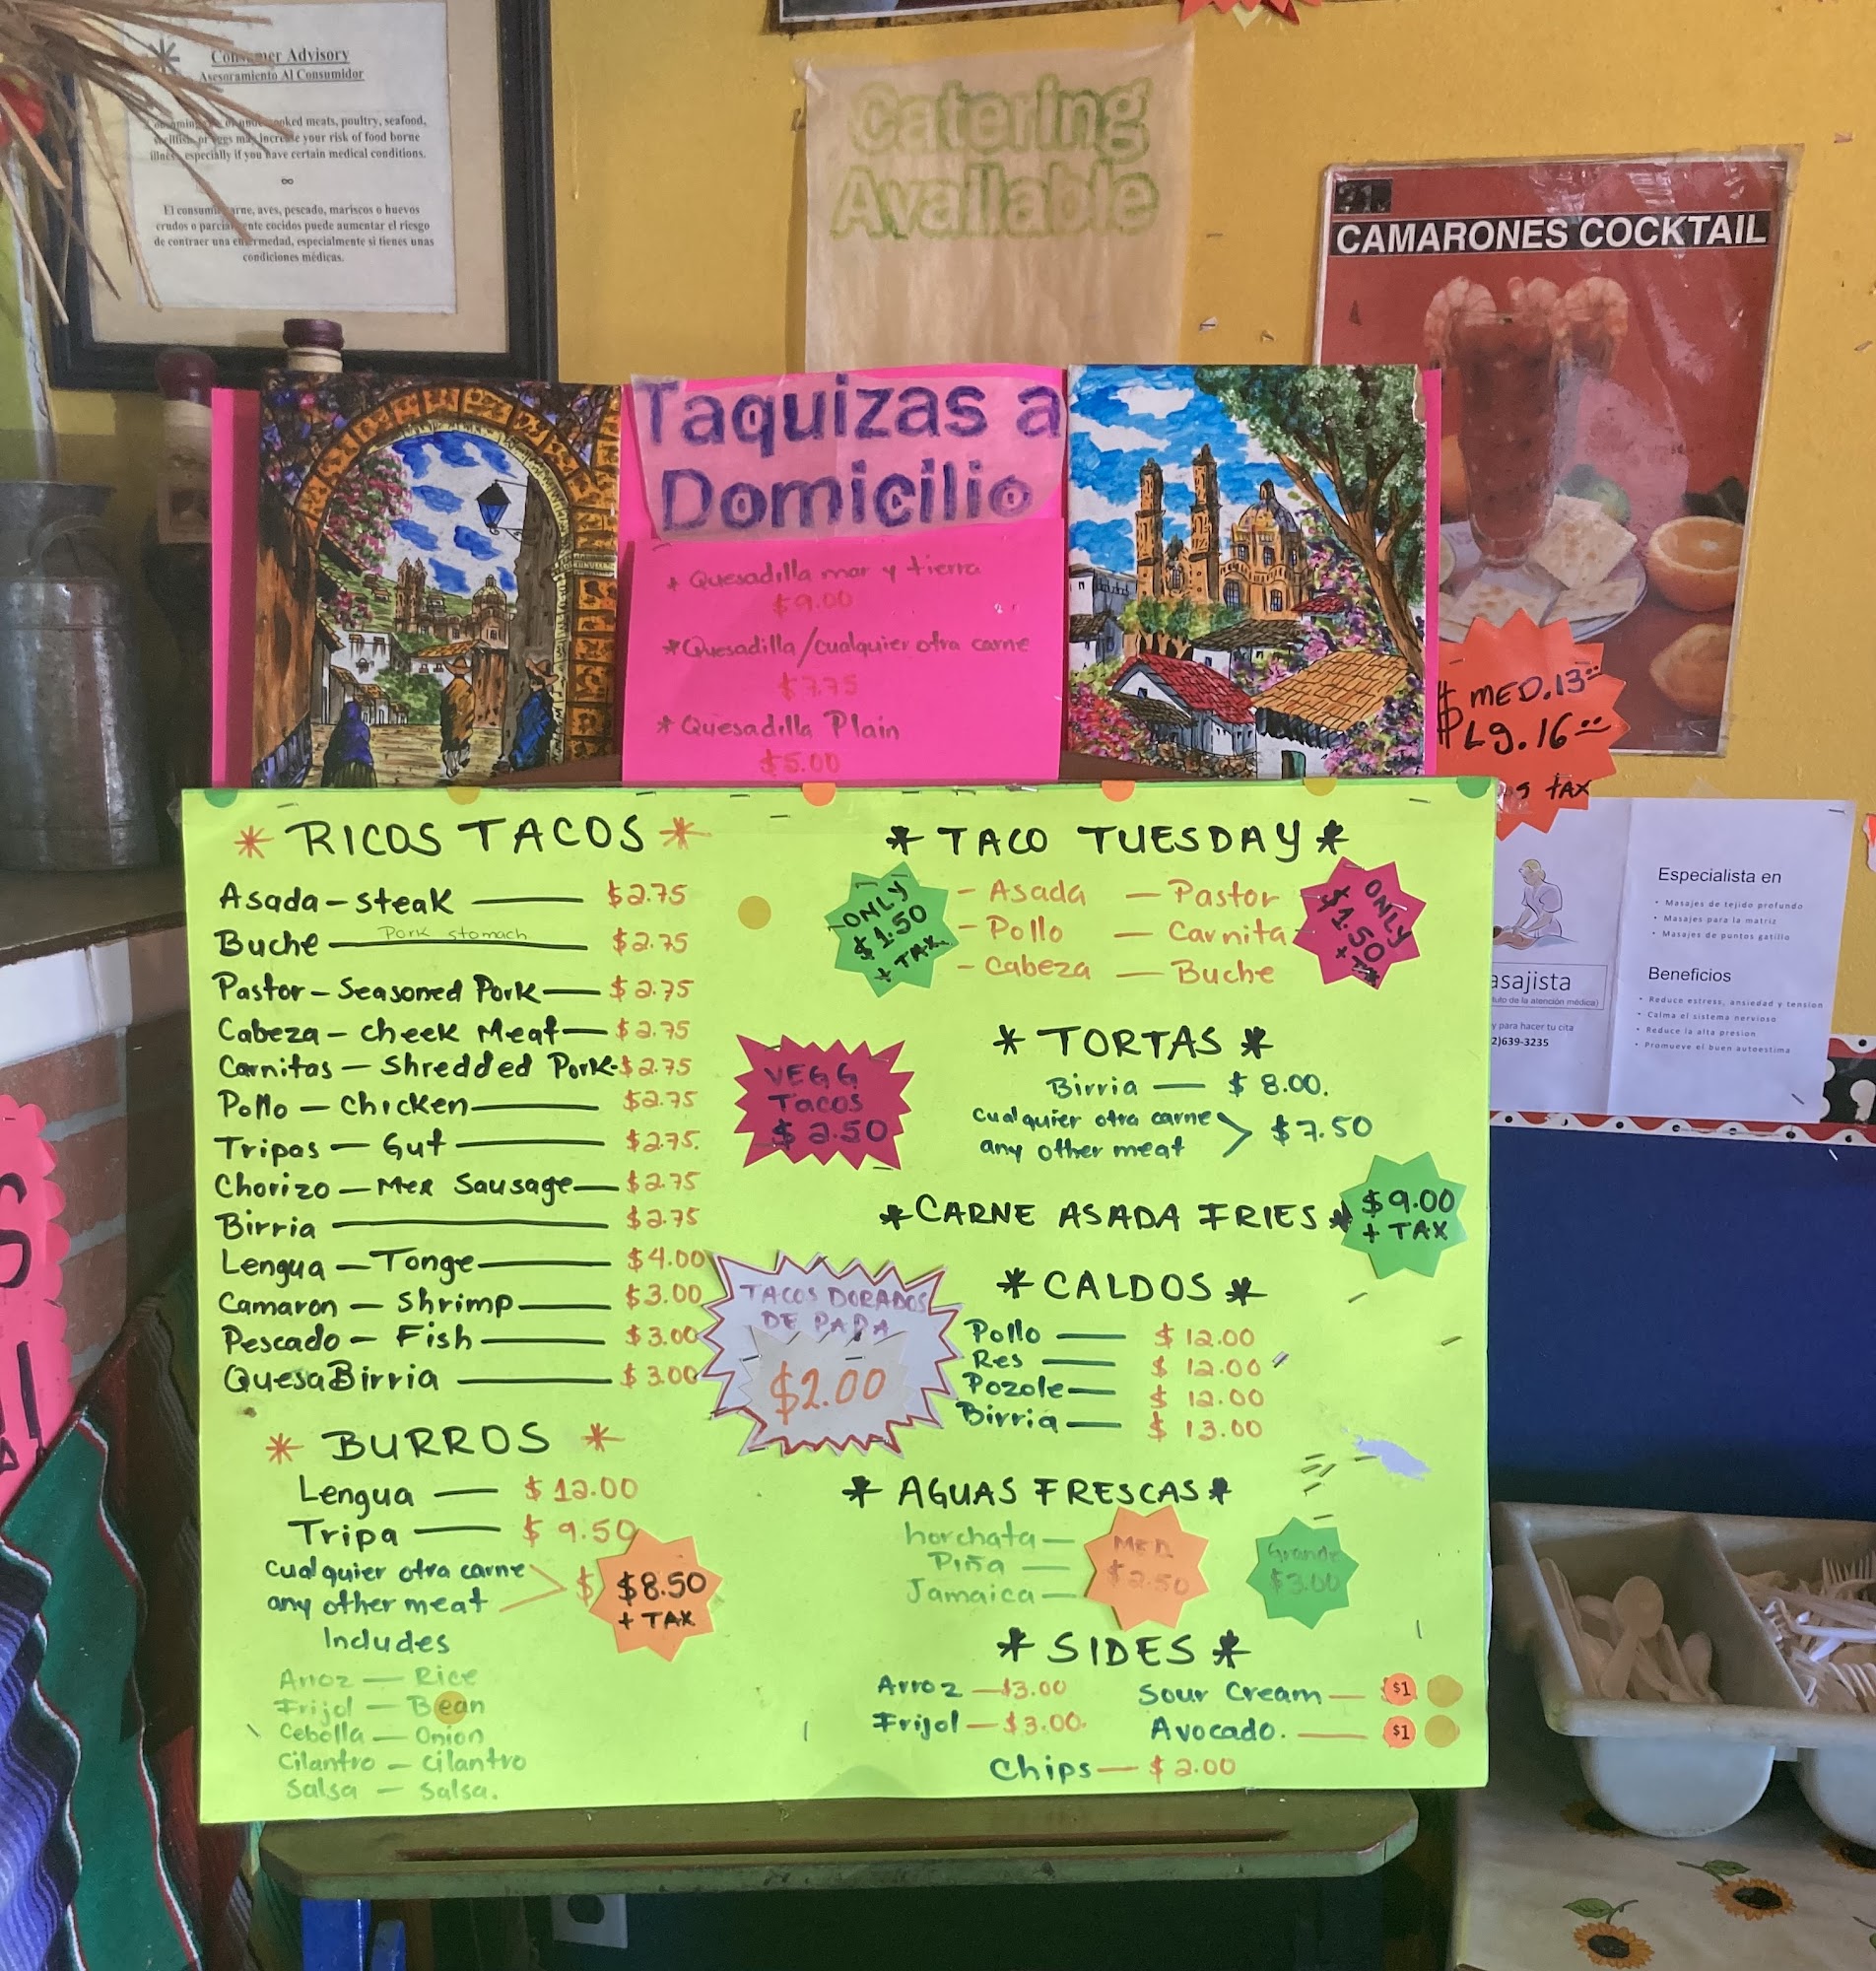 Consumer Advisory
Asesoramiento Al Consumidor
cooked meats, poultry, seafood,
or eggs may increase your risk of food borne
illness, especially if you have certain medical conditions.
El consumir carne, aves, pescado, mariscos o huevos
crudos o parcialmente cocidos puede aumentar el riesgo
de contraer una enfermedad, especialmente si tienes unas
condiciones médicas.
Catering
Available
21.
CAMARONES COCKTAIL
$ MED. 13
$ Lg. 16
TAX
Taquizas a
Domicilio
* Quesadilla mar y tierra
$9.00
* Quesadilla/cualquier otra carne
$7.75
* Quesadilla Plain
$5.00
* RICOS TACOS *
Asada - steak $2.75
Buche Pork stomach $2.75
Pastor - Seasoned Pork $2.75
Cabeza - cheek Meat $2.75
Carnitas - Shredded Pork $2.75
Pollo - chicken $2.75
Tripas - Gut $2.75.
Chorizo - Mex Sausage $2.75
Birria $2.75
Lengua - Tonge $4.00
Camaron - Shrimp $3.00
Pescado - Fish $3.00
QuesaBirria $3.00
VEGG
Tacos
$2.50
TACOS DORADOS
DE PAPA
$2.00
* BURROS *
Lengua $12.00
Tripa $9.50
Cualquier otra carne
any other meat
$
$8.50
+ TAX
Includes
Arroz - Rice
Frijol - Bean
Cebolla - Onion
Cilantro - Cilantro
Salsa - Salsa.
* TACO TUESDAY *
ONLY
$1.50
+ TAX
- Asada - Pastor
- Pollo - Carnita
- Cabeza - Buche
ONLY
$1.50
+ TAX
* TORTAS *
Birria - $8.00.
Cualquier otra carne
any other meat
> $7.50
* CARNE ASADA FRIES *
$9.00
+ TAX
* CALDOS *
Pollo $12.00
Res $12.00
Pozole $12.00
Birria $13.00
* AGUAS FRESCAS *
horchata
Piña
Jamaica
MED.
$2.50
Grande
$3.00
* SIDES *
Arroz - $3.00
Frijol - $3.00.
Sour Cream - $1
Avocado. - $1
Chips - $2.00
Especialista en
• Masajes de tejido profundo
• Masajes para la matriz
• Masajes de puntos gatillo
Beneficios
• Reduce estress, ansiedad y tension
• Calma el sistema nervioso
• Reduce la alta presion
• Promueve el buen autoestima
asajista
de la atención médica)
y para hacer tu cita
2)639-3235